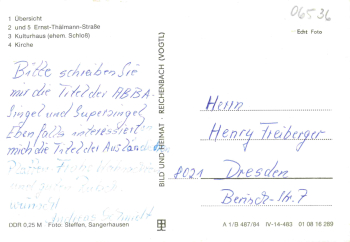 1 Übersicht
2 und 5 Ernst-Thälmann-Straße
3 Kulturhaus (ehem. Schloß)
4 Kirche
06536
Echt Foto
Bitte schreiben Sie
mir die Titel der ABBA-
Singel und Supersingel
Ebenfalls interessiert
mich die Titel der
und guten
wünscht
Andreas
BILD UND HEIMAT · REICHENBACH (VOGTL)
Herrn
Henry Freiberger
8021 Dresden
Str. 7
DDR 0,25 M Foto: Steffen, Sangerhausen
A 1/B 487/84 IV-14-483 01 08 16 269